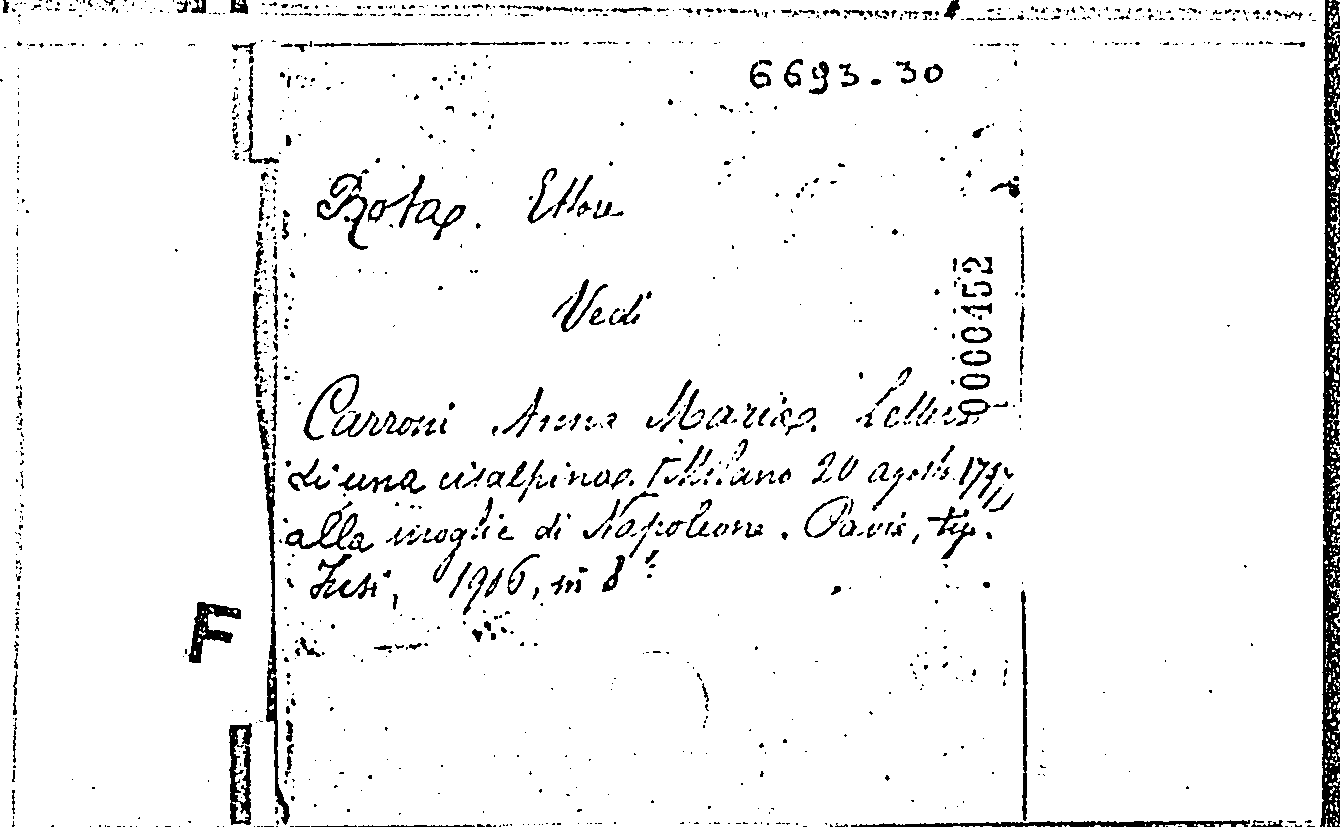 6693.30
Rota. Ettore
Vedi
0000452
Carroni Anna Maria. Lettera
di una cisalpina. (Milano 20 agosto
alla moglie di Napoleone. Pavia, tip.
Fusi, 1906, in 8°
F